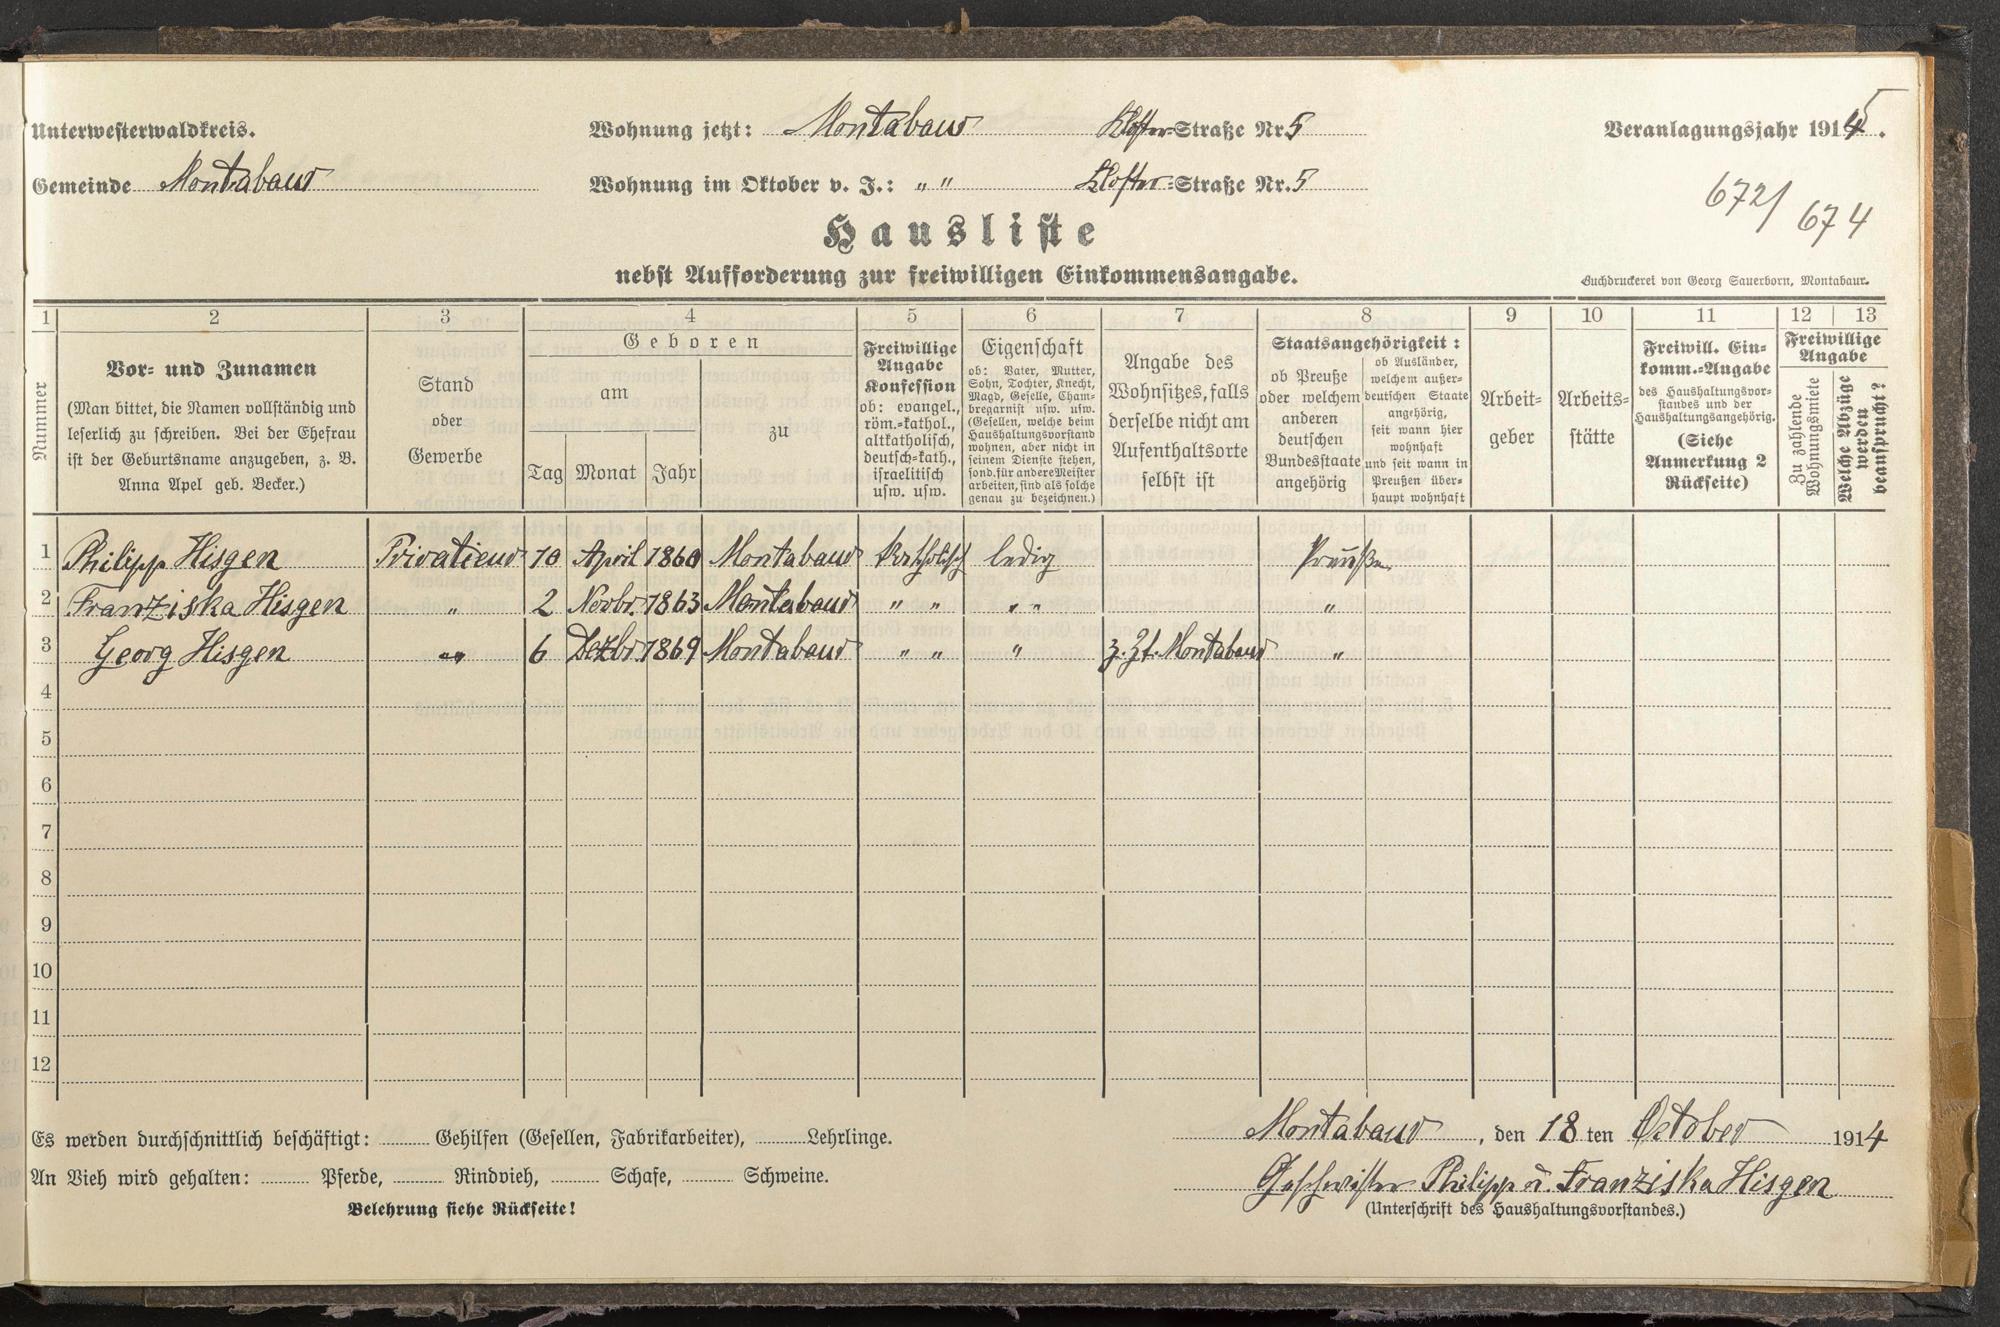 Unterwesterwaldkreis.
Wohnung jetzt: Montabaur Kloster-Straße Nr. 5
Veranlagungsjahr 1915.
Gemeinde Montabaur
Wohnung im Oktober v. J.: " " Kloster-Straße Nr. 5
672/ 674
Hausliste
nebst Aufforderung zur freiwilligen Einkommensangabe.
Buchdruckerei von Georg Sauerborn, Montabaur.
1 2 3 4 5 6 7 8 9 10 11 12 13
Nummer
Vor- und Zunamen
(Man bittet, die Namen vollständig und
leserlich zu schreiben. Bei der Ehefrau
ist der Geburtsname anzugeben, z. B.
Anna Apel geb. Becker.)
Stand
oder
Gewerbe
Geboren
am
zu
Tag Monat Jahr
Freiwillige
Angabe
Konfession
ob: evangel.,
röm.-kathol.,
altkatholisch,
deutsch-kath.,
israelitisch
usw. usw.
Eigenschaft
ob: Vater, Mutter,
Sohn, Tochter, Knecht,
Magd, Geselle, Cham-
bregarnist usw. usw.
(Gesellen, welche beim
Haushaltungsvorstand
wohnen, aber nicht in
seinem Dienste stehen,
sond. für andere Meister
arbeiten, sind als solche
genau zu bezeichnen.)
Angabe des
Wohnsitzes, falls
derselbe nicht am
Aufenthaltsorte
selbst ist
Staatsangehörigkeit:
ob Preuße
oder welchem
anderen
deutschen
Bundesstaate
angehörig
ob Ausländer,
welchem außer-
deutschen Staate
angehörig,
seit wann hier
wohnhaft
und seit wann in
Preußen über-
haupt wohnhaft
Arbeit-
geber
Arbeits-
stätte
Freiwill. Ein-
komm.-Angabe
des Haushaltungsvor-
standes und der
Haushaltungsangehörig.
(Siehe
Anmerkung 2
Rückseite)
Freiwillige
Angabe
Zu zahlende
Wohnungsmiete
Welche Abzüge
werden
beansprucht?
1 Philipp Hisgen Privatieur 10 April 1860 Montabaur katholisch ledig Preuße
2 Franziska Hisgen " 2 Novbr. 1863 Montabaur " " " " "
3 Georg Hisgen " " 6 Dezbr 1869 Montabaur " " " z. Zt. Montabaur "
4
5
6
7
8
9
10
11
12
Es werden durchschnittlich beschäftigt: Gehilfen (Gesellen, Fabrikarbeiter), Lehrlinge.
Montabaur, den 18ten October 1914
An Vieh wird gehalten: Pferde, Rindvieh, Schafe, Schweine.
Geschwister Philipp u. Franziska Hisgen
Belehrung siehe Rückseite!
(Unterschrift des Haushaltungsvorstandes.)